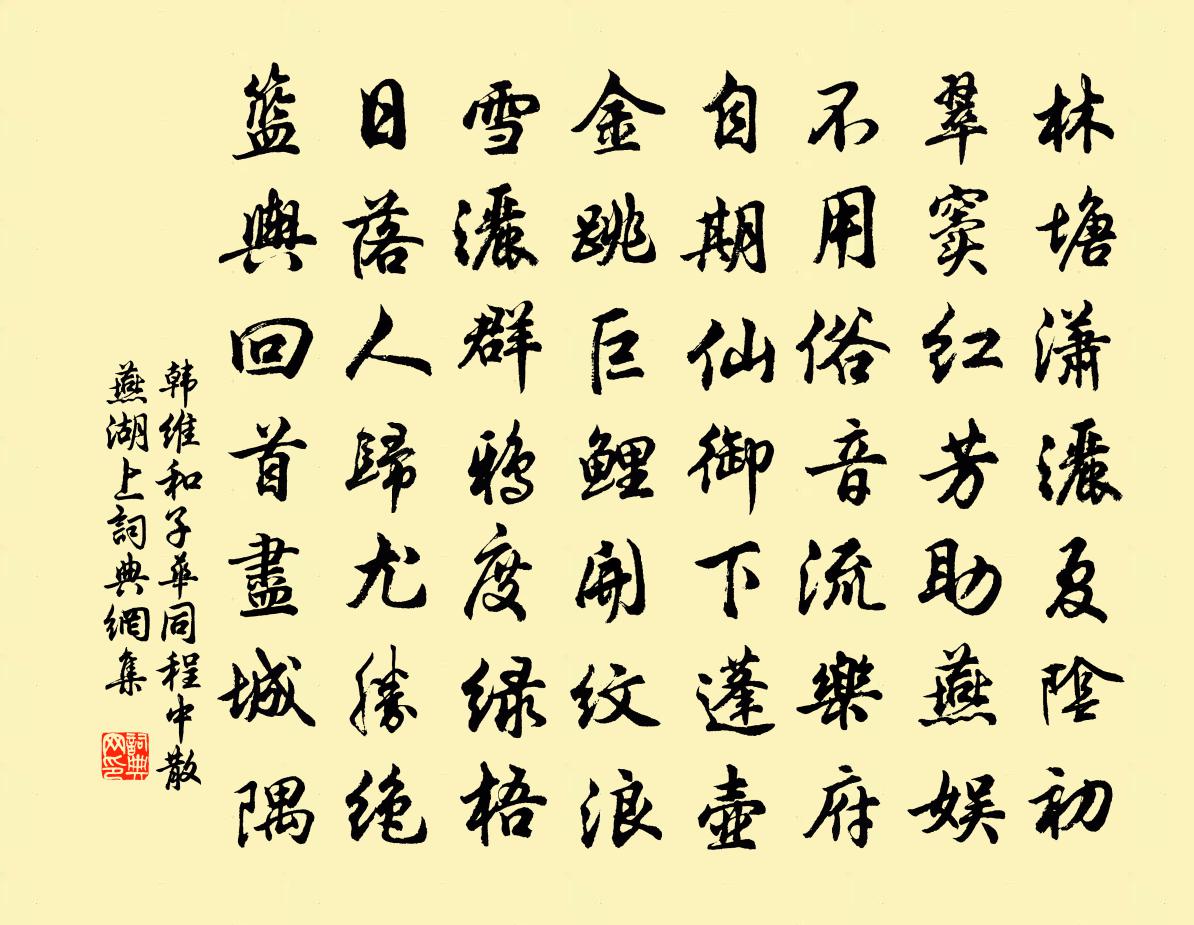 林塘潇灑夏陰初
翠窦红芳助燕娱
不用俗音流樂府
自期仙御下蓬壷
金跳巨鲤開纹浪
雪灑群鸦度绿梧
日落人歸尤勝绝
籃輿回首盡城隅
韩维和子華同程中散
燕湖上詞典網集
詞典网印